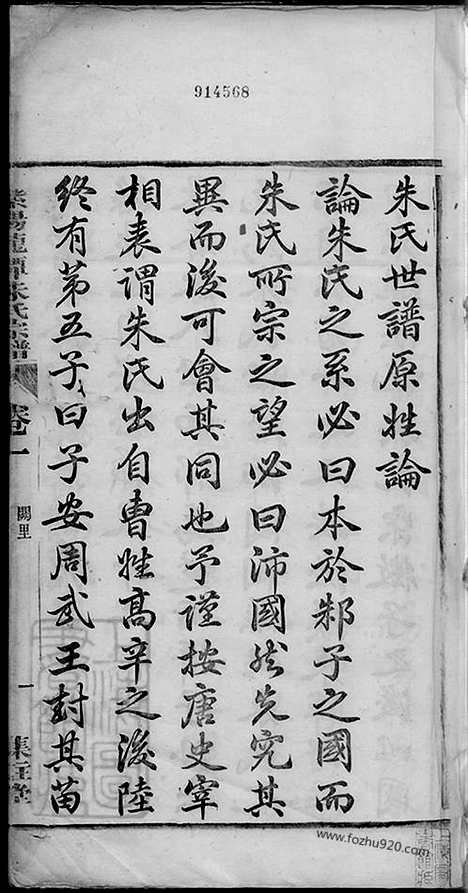 914568
朱氏世譜原姓論
論朱氏之系必曰本於邾子之國而
朱氏所宗之望必曰沛國然先究其
異而後可會其同也予謹按唐史宰
相表謂朱氏出自曹姓高辛之後陸
終有第五子曰子安周武王封其苗
朱氏宗譜
卷一
闕里
一
www.fozhu920.com